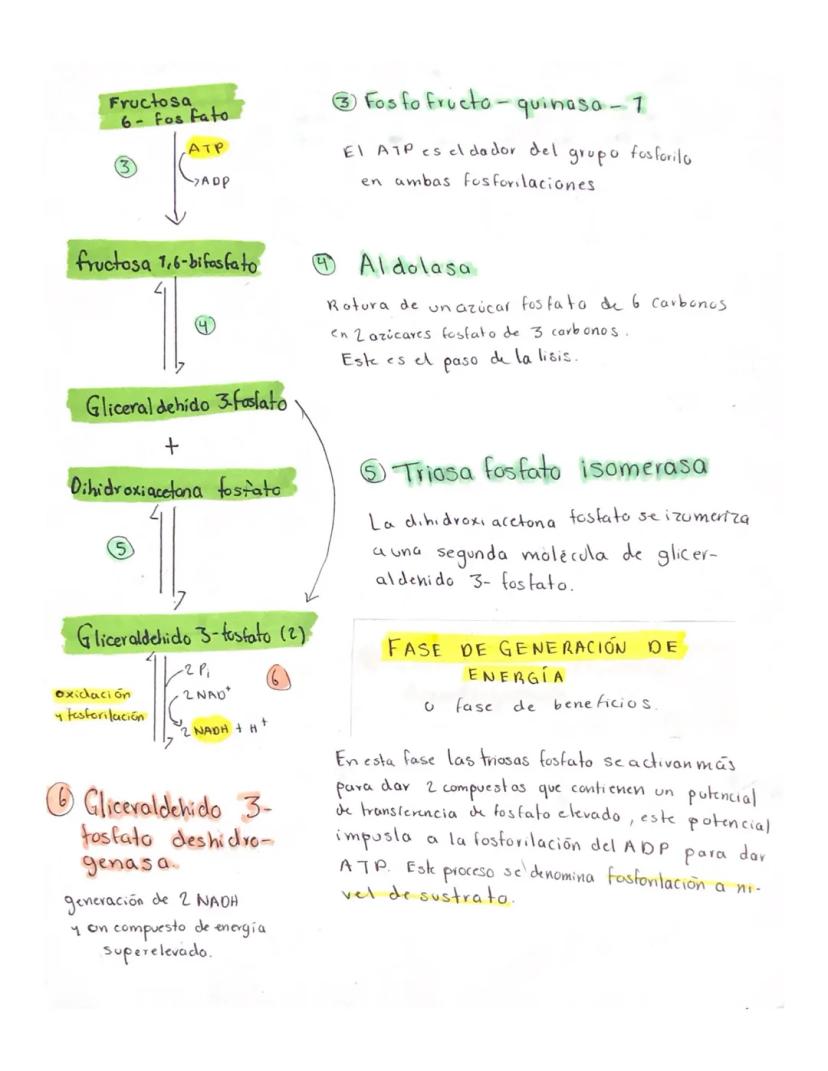 Fructosa
6- fosfato
③ Fosfofructo-quinasa-1
ATP
③
ADP
El ATP es el dador del grupo fosforilo
en ambas fosforilaciones
fructosa 1,6-bifosfato
④ Aldolasa
Rotura de un azúcar fosfato de 6 carbonos
en 2 azúcares fosfato de 3 carbonos.
Este es el paso de la lisis.
④
Gliceraldehido 3-fosfato
+
Dihidroxiacetona fosfato
⑤ Triosa fosfato isomerasa
La dihidroxiacetona fosfato se izomeriza
a una segunda molécula de glicer-
aldehido 3- fosfato.
⑤
Gliceraldehido 3-fosfato (2)
2 Pi
⑥
2 NAD+
2 NADH + H+
oxidación
y fosforilación
FASE DE GENERACIÓN DE
ENERGÍA
o fase de beneficios.
En esta fase las triosas fosfato se activan más
para dar 2 compuestos que contienen un potencial
de transferencia de fosfato elevado, este potencial
impusla a la fosforilación del ADP para dar
ATP. Este proceso se denomina fosforilación a ni-
vel de sustrato.
⑥ Gliceraldehido 3-
fosfato deshidro-
genasa.
generación de 2 NADH
y un compuesto de energía
superelevado.